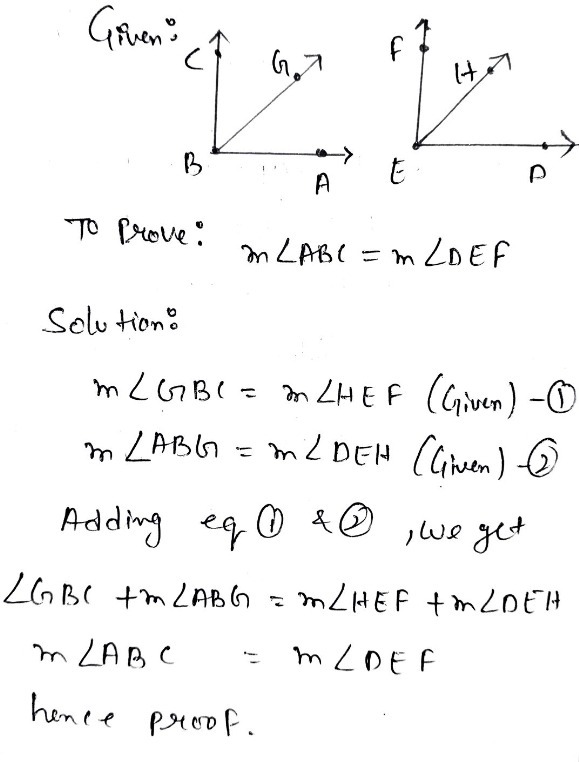 Given:
C G F H
B A E D
To Prove:
m∠ABC = m∠DEF
Solution:
m∠GBC = m∠HEF (Given) -①
m∠ABG = m∠DEH (Given) -②
Adding eq ① & ②, we get
∠GBC + m∠ABG = m∠HEF + m∠DEH
m∠ABC = m∠DEF
hence proof.